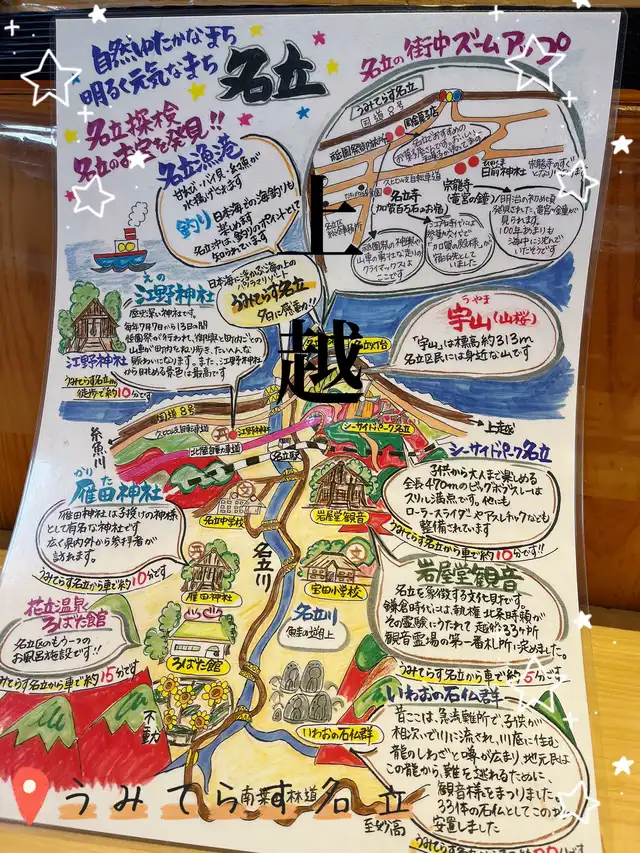 自然ゆたかなまち
明るく元気なまち
名立
名立探検
名立のお宝を発見!!
名立の街中ズームアップ
うみてらす名立
国道8号
名立寺
(加賀百万石のお宿)
宗龍寺
(竜宮の鐘)
日前神社
明治の初め頃
発見された、竜宮の鐘が
見られます。
100年あまりも
海中に沈んで
いたそうです
祇園祭の
山車の
クライマックスは
ここです
名立漁港
甘えび・バイ貝・紅ズワイが
水揚げされます
釣り
日本海での海釣りも
楽しめます
名立沖は、釣りのポイントとして
知られています
上
越
日本海に浮かぶ海の上の
パノラマリゾート
うみてらす名立
夕日に感動!!
えの
江野神社
歴史深い神社です。
毎年7月7日から13日の間
祇園祭が行われ、御神輿と町内ごとの
山車が町内をねり歩き、たいへんな
賑わいになります。また、江野神社
から眺める景色は最高です
江野神社
うみてらす名立から
徒歩で約10分です
うやま
宇山(山桜)
「宇山」は標高約313m
名立区民には身近な山です
国道8号
久比岐自転車道
江野神社
北陸自動車道
名立駅
シーサイドパーク名立
→上越
糸魚川
シーサイドパーク名立
子供から大人まで楽しめる
全長470mのビッグボブスレーは
スリル満点です。他にも
ローラースライダーやアスレチックなども
整備されています
うみてらす名立から車で約10分です!!
かり た
雁田神社
雁田神社は子授けの神様
として有名な神社です
広く県内外から参拝者が
訪れます。
うみてらす名立から車で約10分です
名立中学校
岩屋堂観音
雁田神社
宝田小学校
名立川
名立川
鮭の遡上
岩屋堂観音
名立を象徴する文化財です。
鎌倉時代には、執権 北条時頼が
その霊験にうたれて 越後33ヶ所
観音霊場の第一番札所と定めました。
うみてらす名立から車で約5分です
花立温泉
ろばた館
名立区のもう一つの
お風呂施設です!!
うみてらす名立から車で約15分です
ろばた館
不動
いわおの石仏群
いわおの石仏群
昔ここは、急流難所で、子供が
相次いで川に流され、川底に住む
龍のしわざと噂が広まり、地元民は
この龍から、難を逃れるために、
観音様をまつりました。
33体の石仏としてこの
安置しました
南葉 林道
至妙高
うみてらす名立